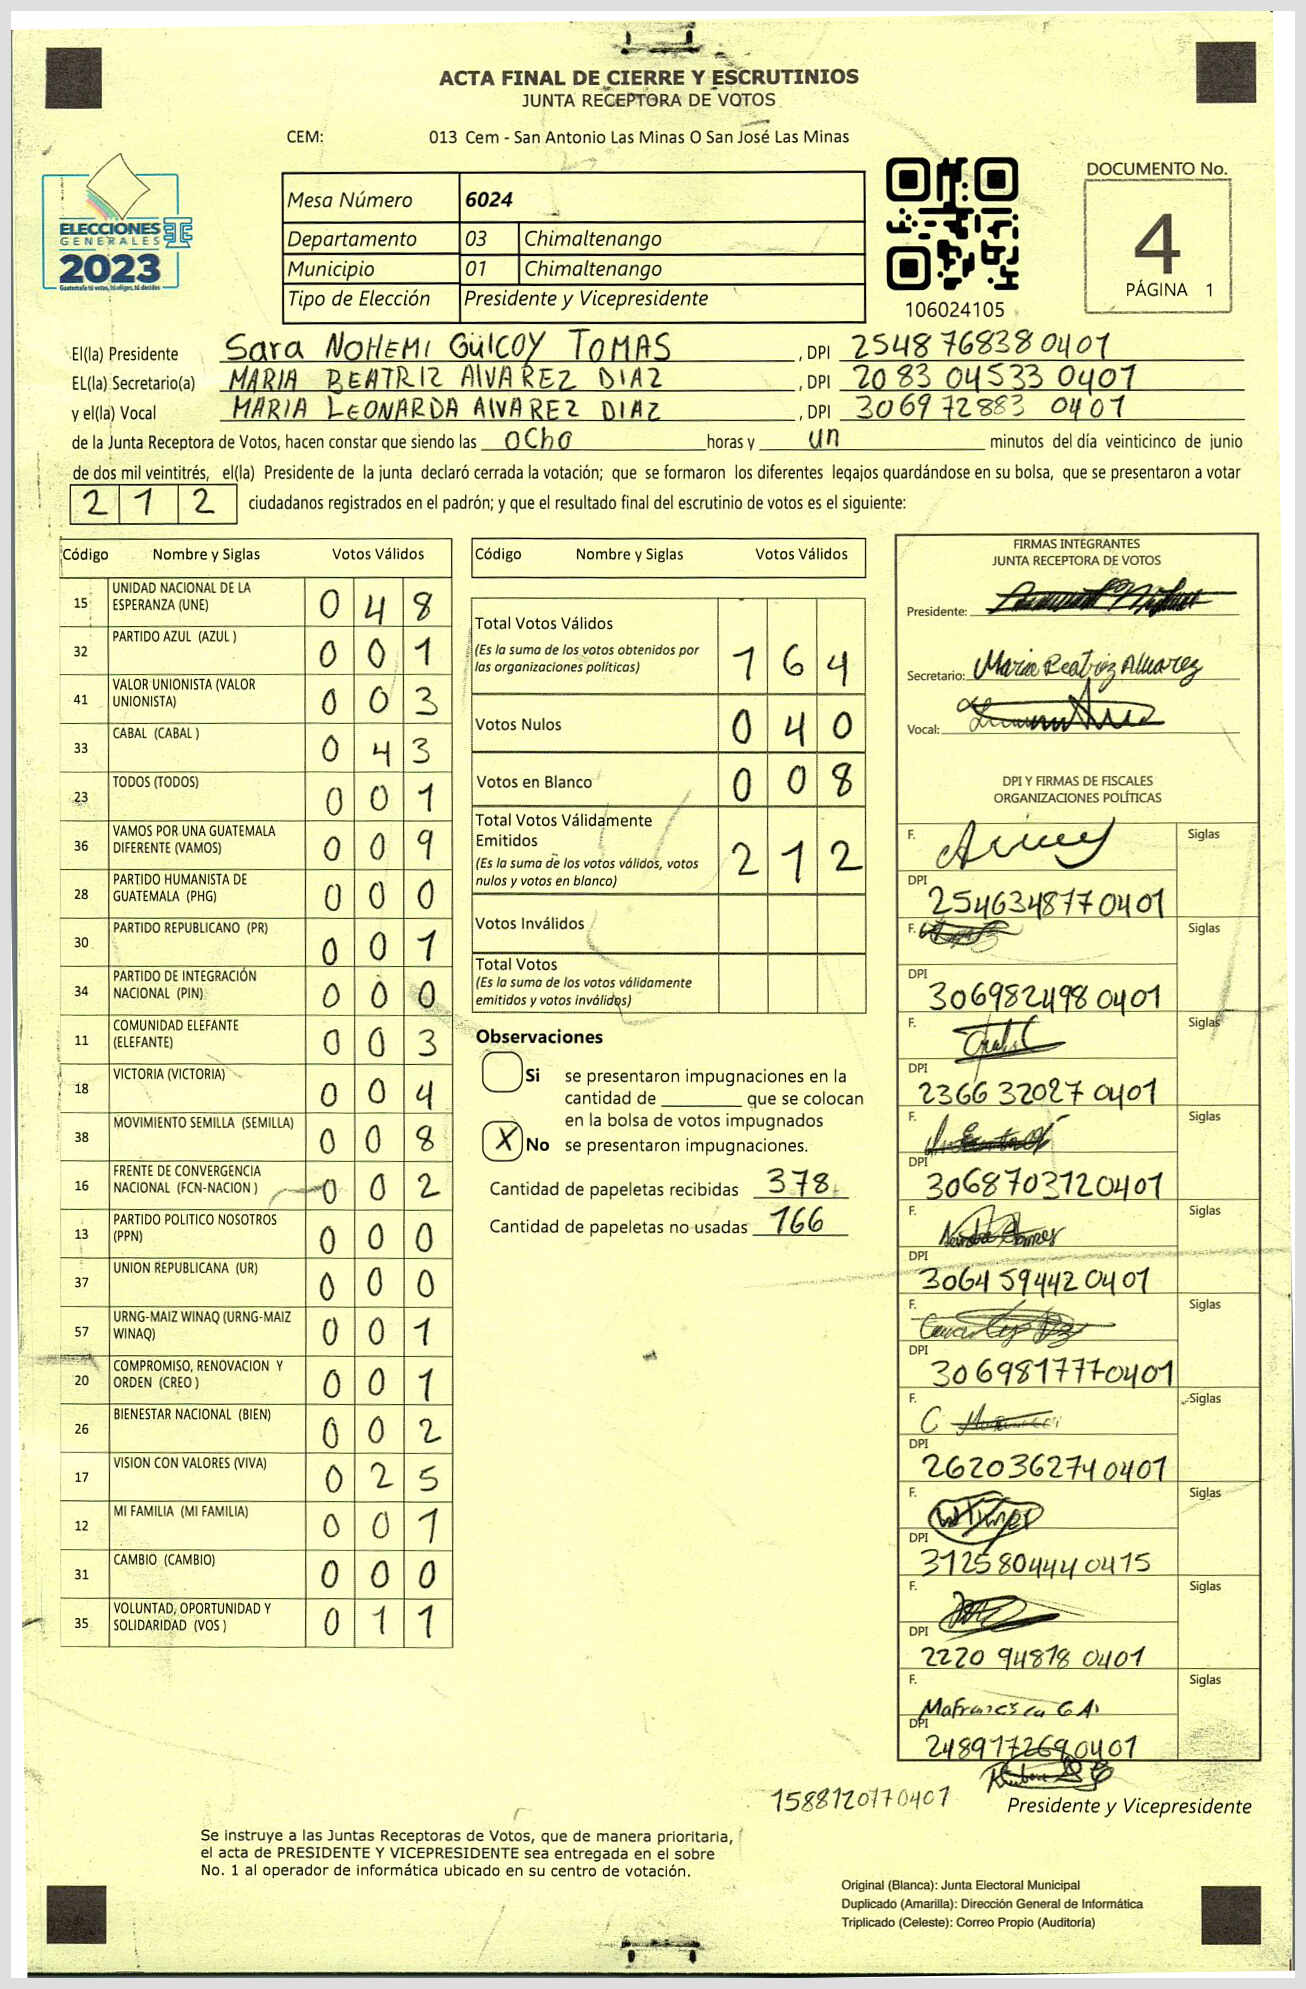 ACTA FINAL DE CIERRE Y ESCRUTINIOS
JUNTA RECEPTORA DE VOTOS
CEM: 013 Cem - San Antonio Las Minas O San José Las Minas
ELECCIONES
GENERALES
2023
Guatemala tú votas, tú eliges, tú decides
TSE
Mesa Número 6024
Departamento 03 Chimaltenango
Municipio 01 Chimaltenango
Tipo de Elección Presidente y Vicepresidente
106024105
DOCUMENTO No.
4
PÁGINA 1
El(la) Presidente Sara NOHEMI GÜLCOY TOMAS , DPI 2548 76838 0401
EL(la) Secretario(a) MARIA BEATRIZ ALVAREZ DIAZ , DPI 2083 04533 0401
y el(la) Vocal MARIA LEONARDA ALVAREZ DIAZ , DPI 3069 72883 0401
de la Junta Receptora de Votos, hacen constar que siendo las ocho horas y un minutos del día veinticinco de junio
de dos mil veintitrés, el(la) Presidente de la junta declaró cerrada la votación; que se formaron los diferentes legajos guardándose en su bolsa, que se presentaron a votar
212 ciudadanos registrados en el padrón; y que el resultado final del escrutinio de votos es el siguiente:
Código Nombre y Siglas Votos Válidos
15 UNIDAD NACIONAL DE LA ESPERANZA (UNE) 048
32 PARTIDO AZUL (AZUL ) 001
41 VALOR UNIONISTA (VALOR UNIONISTA) 003
33 CABAL (CABAL ) 043
23 TODOS (TODOS) 001
36 VAMOS POR UNA GUATEMALA DIFERENTE (VAMOS) 009
28 PARTIDO HUMANISTA DE GUATEMALA (PHG) 000
30 PARTIDO REPUBLICANO (PR) 001
34 PARTIDO DE INTEGRACIÓN NACIONAL (PIN) 000
11 COMUNIDAD ELEFANTE (ELEFANTE) 003
18 VICTORIA (VICTORIA) 004
38 MOVIMIENTO SEMILLA (SEMILLA) 008
16 FRENTE DE CONVERGENCIA NACIONAL (FCN-NACION ) 002
13 PARTIDO POLITICO NOSOTROS (PPN) 000
37 UNION REPUBLICANA (UR) 000
57 URNG-MAIZ WINAQ (URNG-MAIZ WINAQ) 001
20 COMPROMISO, RENOVACION Y ORDEN (CREO ) 001
26 BIENESTAR NACIONAL (BIEN) 002
17 VISION CON VALORES (VIVA) 025
12 MI FAMILIA (MI FAMILIA) 001
31 CAMBIO (CAMBIO) 000
35 VOLUNTAD, OPORTUNIDAD Y SOLIDARIDAD (VOS ) 011
Código Nombre y Siglas Votos Válidos
Total Votos Válidos 164
(Es la suma de los votos obtenidos por
las organizaciones políticas)
Votos Nulos 040
Votos en Blanco 008
Total Votos Válidamente
Emitidos 212
(Es la suma de los votos válidos, votos
nulos y votos en blanco)
Votos Inválidos
Total Votos
(Es la suma de los votos válidamente
emitidos y votos inválidos)
Observaciones
Si se presentaron impugnaciones en la
cantidad de ________ que se colocan
en la bolsa de votos impugnados
X No se presentaron impugnaciones.
Cantidad de papeletas recibidas 378
Cantidad de papeletas no usadas 166
FIRMAS INTEGRANTES
JUNTA RECEPTORA DE VOTOS
Presidente:
Secretario: Maria Beatriz Alvarez
Vocal:
DPI Y FIRMAS DE FISCALES
ORGANIZACIONES POLÍTICAS
F. Siglas
DPI 254634877 0401
F. Siglas
DPI 306982498 0401
F. Siglas
DPI 2366 32027 0401
F. Siglas
DPI 306870312 0401
F. Siglas
DPI 3064 59442 0401
F. Siglas
DPI 306981777 0401
F. Siglas
DPI 262036274 0401
F. Siglas
DPI 312580444 0415
F. Siglas
DPI 2220 94818 0401
F. Siglas
DPI 248917269 0401
158812017 0401
Presidente y Vicepresidente
Se instruye a las Juntas Receptoras de Votos, que de manera prioritaria,
el acta de PRESIDENTE Y VICEPRESIDENTE sea entregada en el sobre
No. 1 al operador de informática ubicado en su centro de votación.
Original (Blanca): Junta Electoral Municipal
Duplicado (Amarilla): Dirección General de Informática
Triplicado (Celeste): Correo Propio (Auditoría)